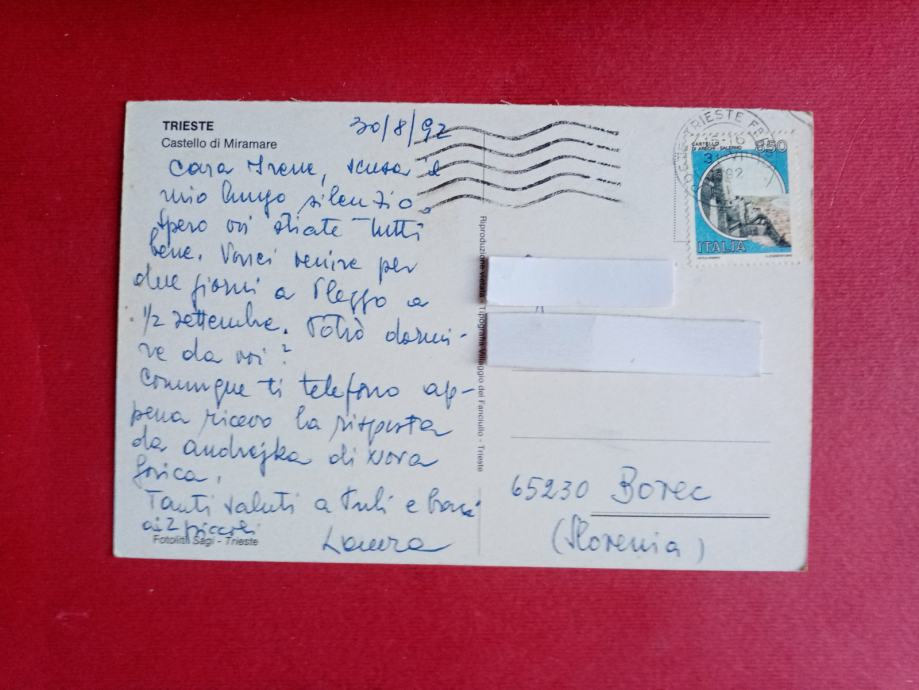 TRIESTE
Castello di Miramare
30/8/92
Cara Irene, scusa il
mio lungo silenzio.
Spero voi stiate tutti
bene. Vorrei venire per
due giorni a Plezzo a
1/2 settembre. Potrò dormi-
re da voi?
Comunque ti telefono ap-
pena ricevo la risposta
da Andrejka di Nova
Gorica.
Tanti saluti a Tuli e baci
ai 2 piccoli
Laura
Fotolito Sagi - Trieste
Riproduzione vietata - Tipografia Villaggio del Fanciullo - Trieste
TRIESTE
92
CASTELLO
DI ARECHI SALERNO
650
ITALIA
65230 Bovec
(Slovenia)